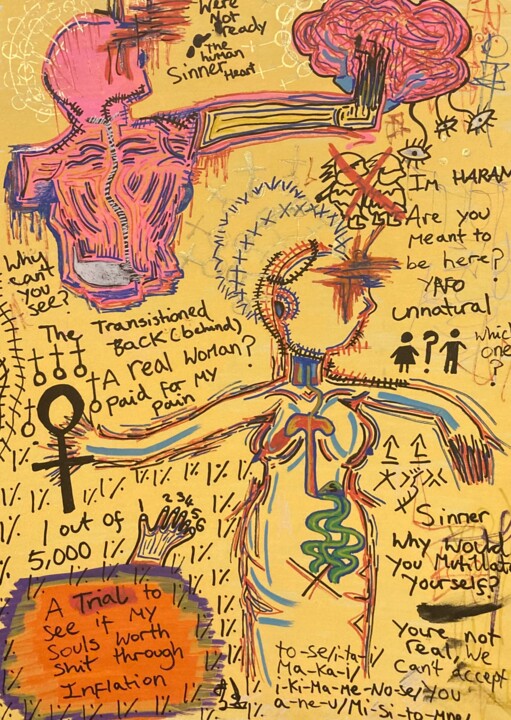 Were
Not
ready
The
human
Sinner Heart
Im HARAM
Are you
Meant to
be here?
YAFO
unnatural
which
one
?
?
Why
cant
you
see?
The Transistioned
BACK (behind)
A real Woman?
Paid For MY
pain
1 out of
5,000
1 2 3 4 5 6
1%
A Trial to
see if My
Souls Worth
Shit through
Inflation
Sinner
Why Would
You Mutilate
Yourself?
Youre not
real, We
Cant Accept
You
to-se/i-ta-/
Ma-ka-i/
i-Ki-Ma-Me-No-se/
a-ne-u/Mi-Si-ta-MNA/